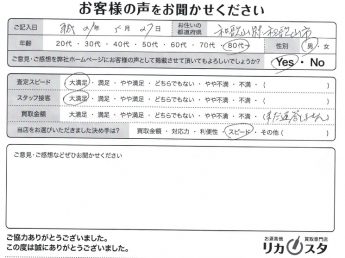 お客様の声をお聞かせください
ご記入日 年 5月27日 お住いの都道府県 和歌山県和歌山市
年齢 20代・30代・40代・50代・60代・70代・80代 性別 男・女
ご意見・ご感想を弊社ホームページにお客様の声として掲載させて頂いてもよろしいでしょうか? Yes・No
査定スピード 大満足・満足・やや満足・どちらでもない・やや不満・不満・(
スタッフ接客 大満足・満足・やや満足・どちらでもない・やや不満・不満・(
買取金額 大満足・満足・やや満足・どちらでもない・やや不満・不満・(
当店をお選びいただきました決め手は? 買取金額・対応力・利便性・スピード・その他( )
ご意見・ご感想などぜひお聞かせください。
ご協力ありがとうございました。
この度は誠にありがとうございました。
お酒高価買取専門店
リカスタ